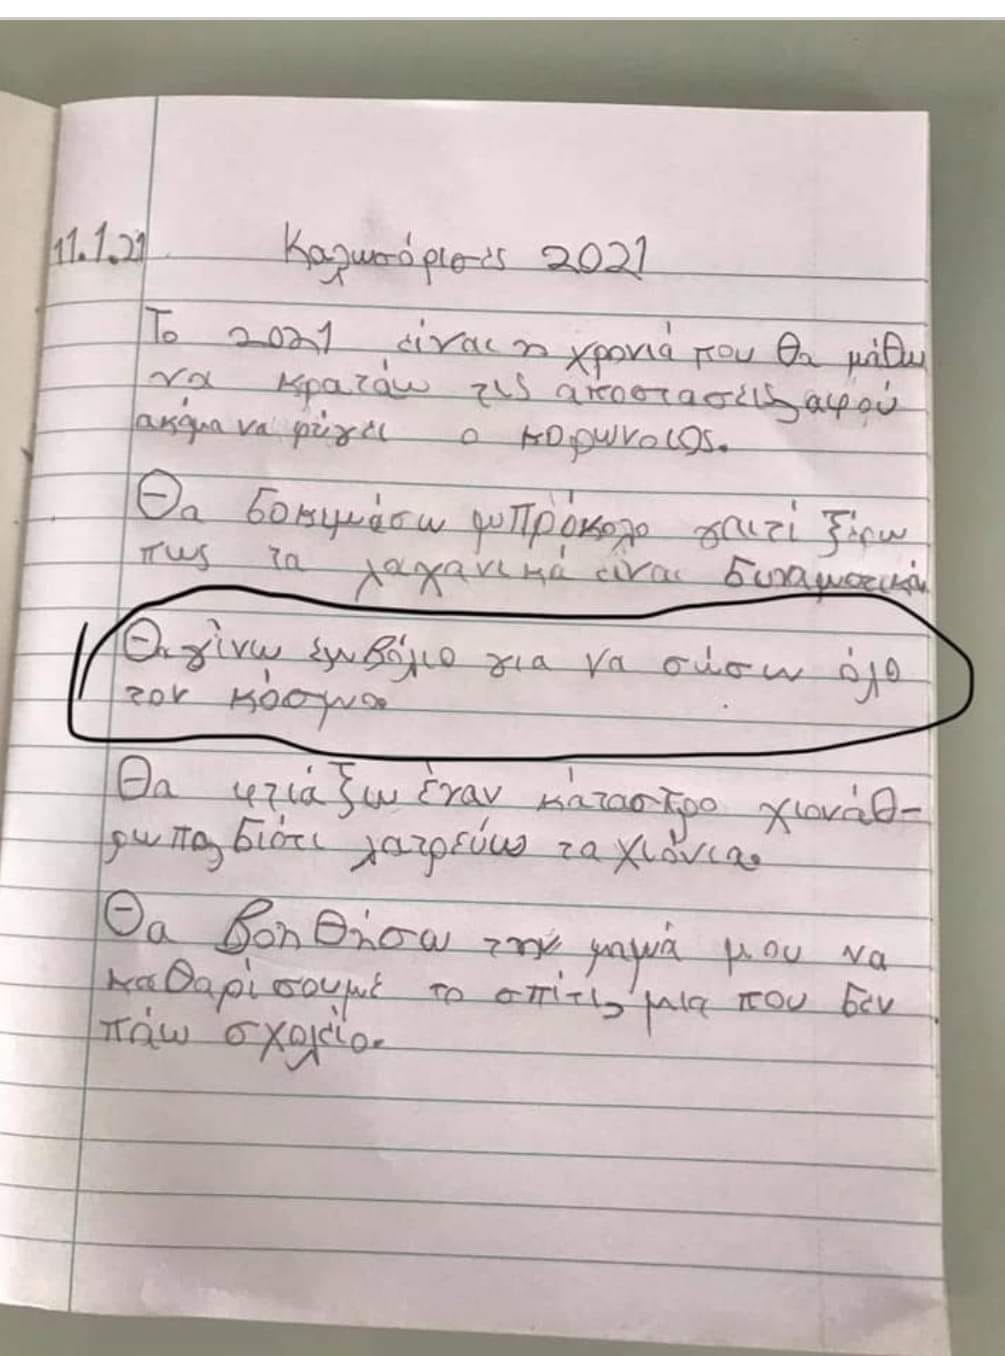 11.1.21 Καλωσόρισες 2021
Το 2021 είναι η χρονιά που θα μάθω
να κρατάω τις αποστάσεις αφού
ακόμα να φύγει ο κορωνοιος.
Θα δοκιμάσω μπρόκολο γιατί ξέρω
πως τα λαχανικά είναι δυναμωτικά
Θα γίνω εμβόλιο για να σώσω όλο
τον κόσμο.
Θα φτιάξω έναν κάτασπρο χιονάθ-
ρωπο, διότι λατρεύω τα χιόνια.
Θα βοηθήσω την μαμά μου να
καθαρίσουμε το σπίτι, μια που δεν
πάω σχολείο.